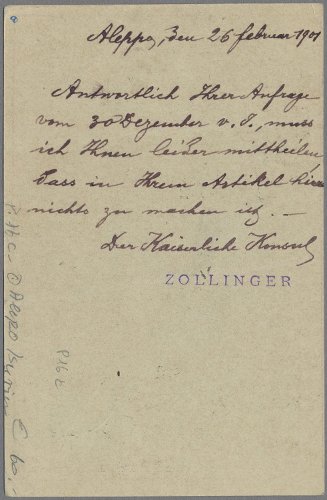 Aleppo, den 26 Februar 1901
Antwortlich Ihrer Anfrage
vom 30 Dezember v. J., muss
ich Ihnen leider mittheilen,
dass in Ihrem Artikel hier
nichts zu machen ist. —
Der Kaiserliche Konsul
ZOLLINGER
P. 16 c
Alepo
60.-